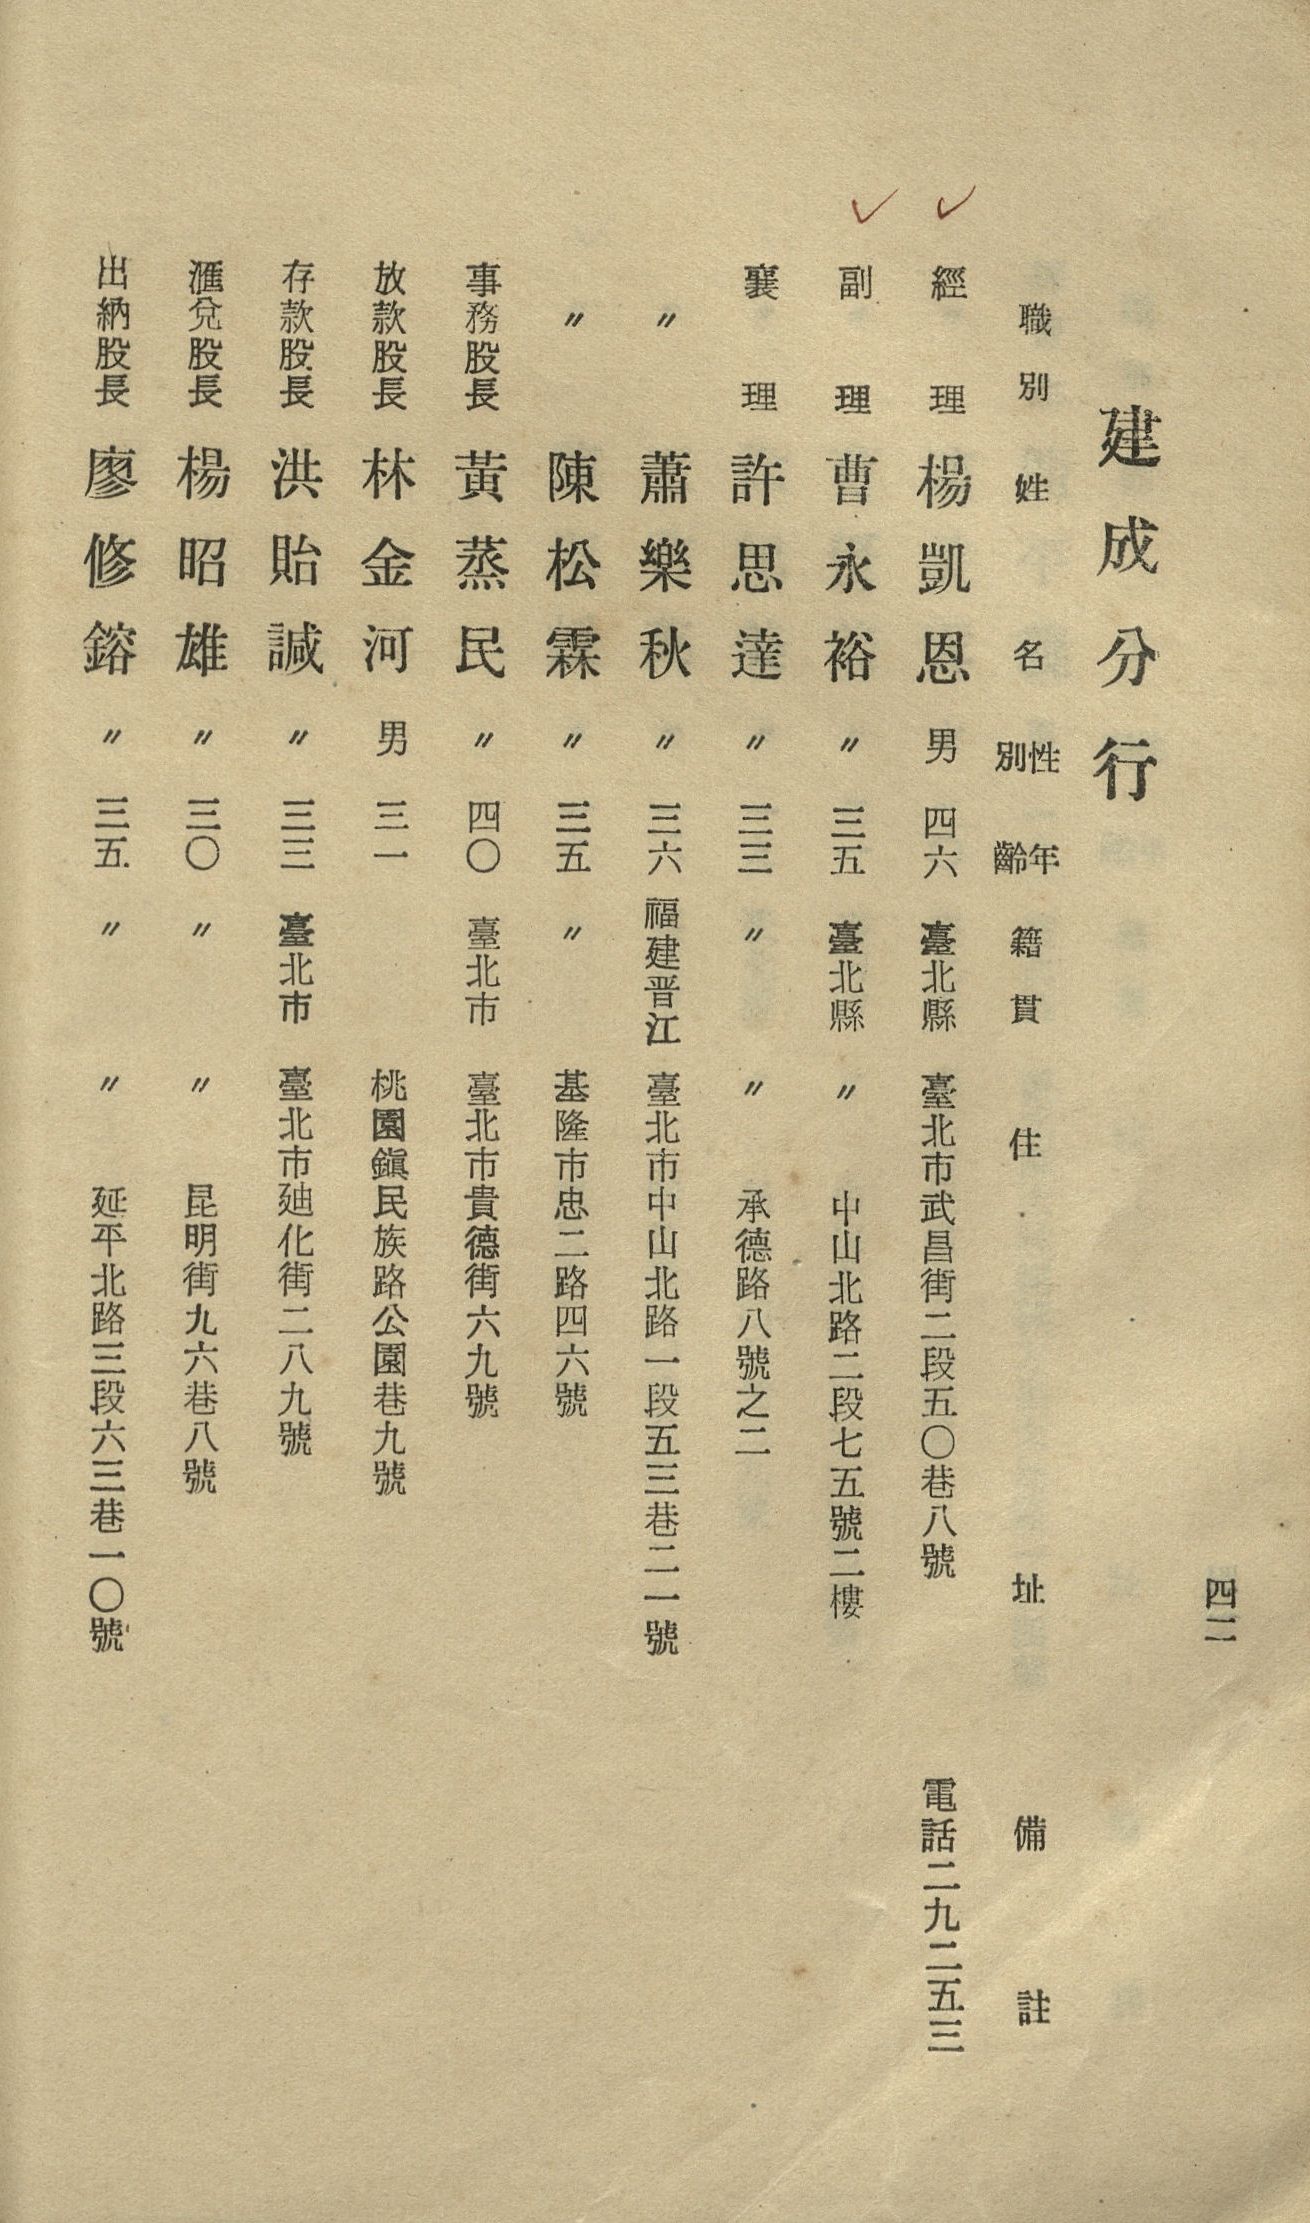 四二
建成分行
職別 姓名 性別 年齡 籍貫 住址 備註
經理 楊凱恩 男 四六 臺北縣 臺北市武昌街二段五〇巷八號 電話二九二五三
副理 曹永裕 〃 三五 臺北縣 〃 中山北路二段七五號二樓
襄理 許思達 〃 三三 〃 〃 承德路八號之二
〃 蕭樂秋 〃 三六 福建晋江 臺北市中山北路一段五三巷二一號
〃 陳松霖 〃 三五 〃 基隆市忠二路四六號
事務股長 黃蒸民 〃 四〇 臺北市 臺北市貴德街六九號
放款股長 林金河 男 三一 桃園鎮民族路公園巷九號
存款股長 洪貽諴 〃 三三 臺北市 臺北市廸化街二八九號
滙兌股長 楊昭雄 〃 三〇 〃 〃 昆明街九六巷八號
出納股長 廖修鎔 〃 三五 〃 〃 延平北路三段六三巷一〇號